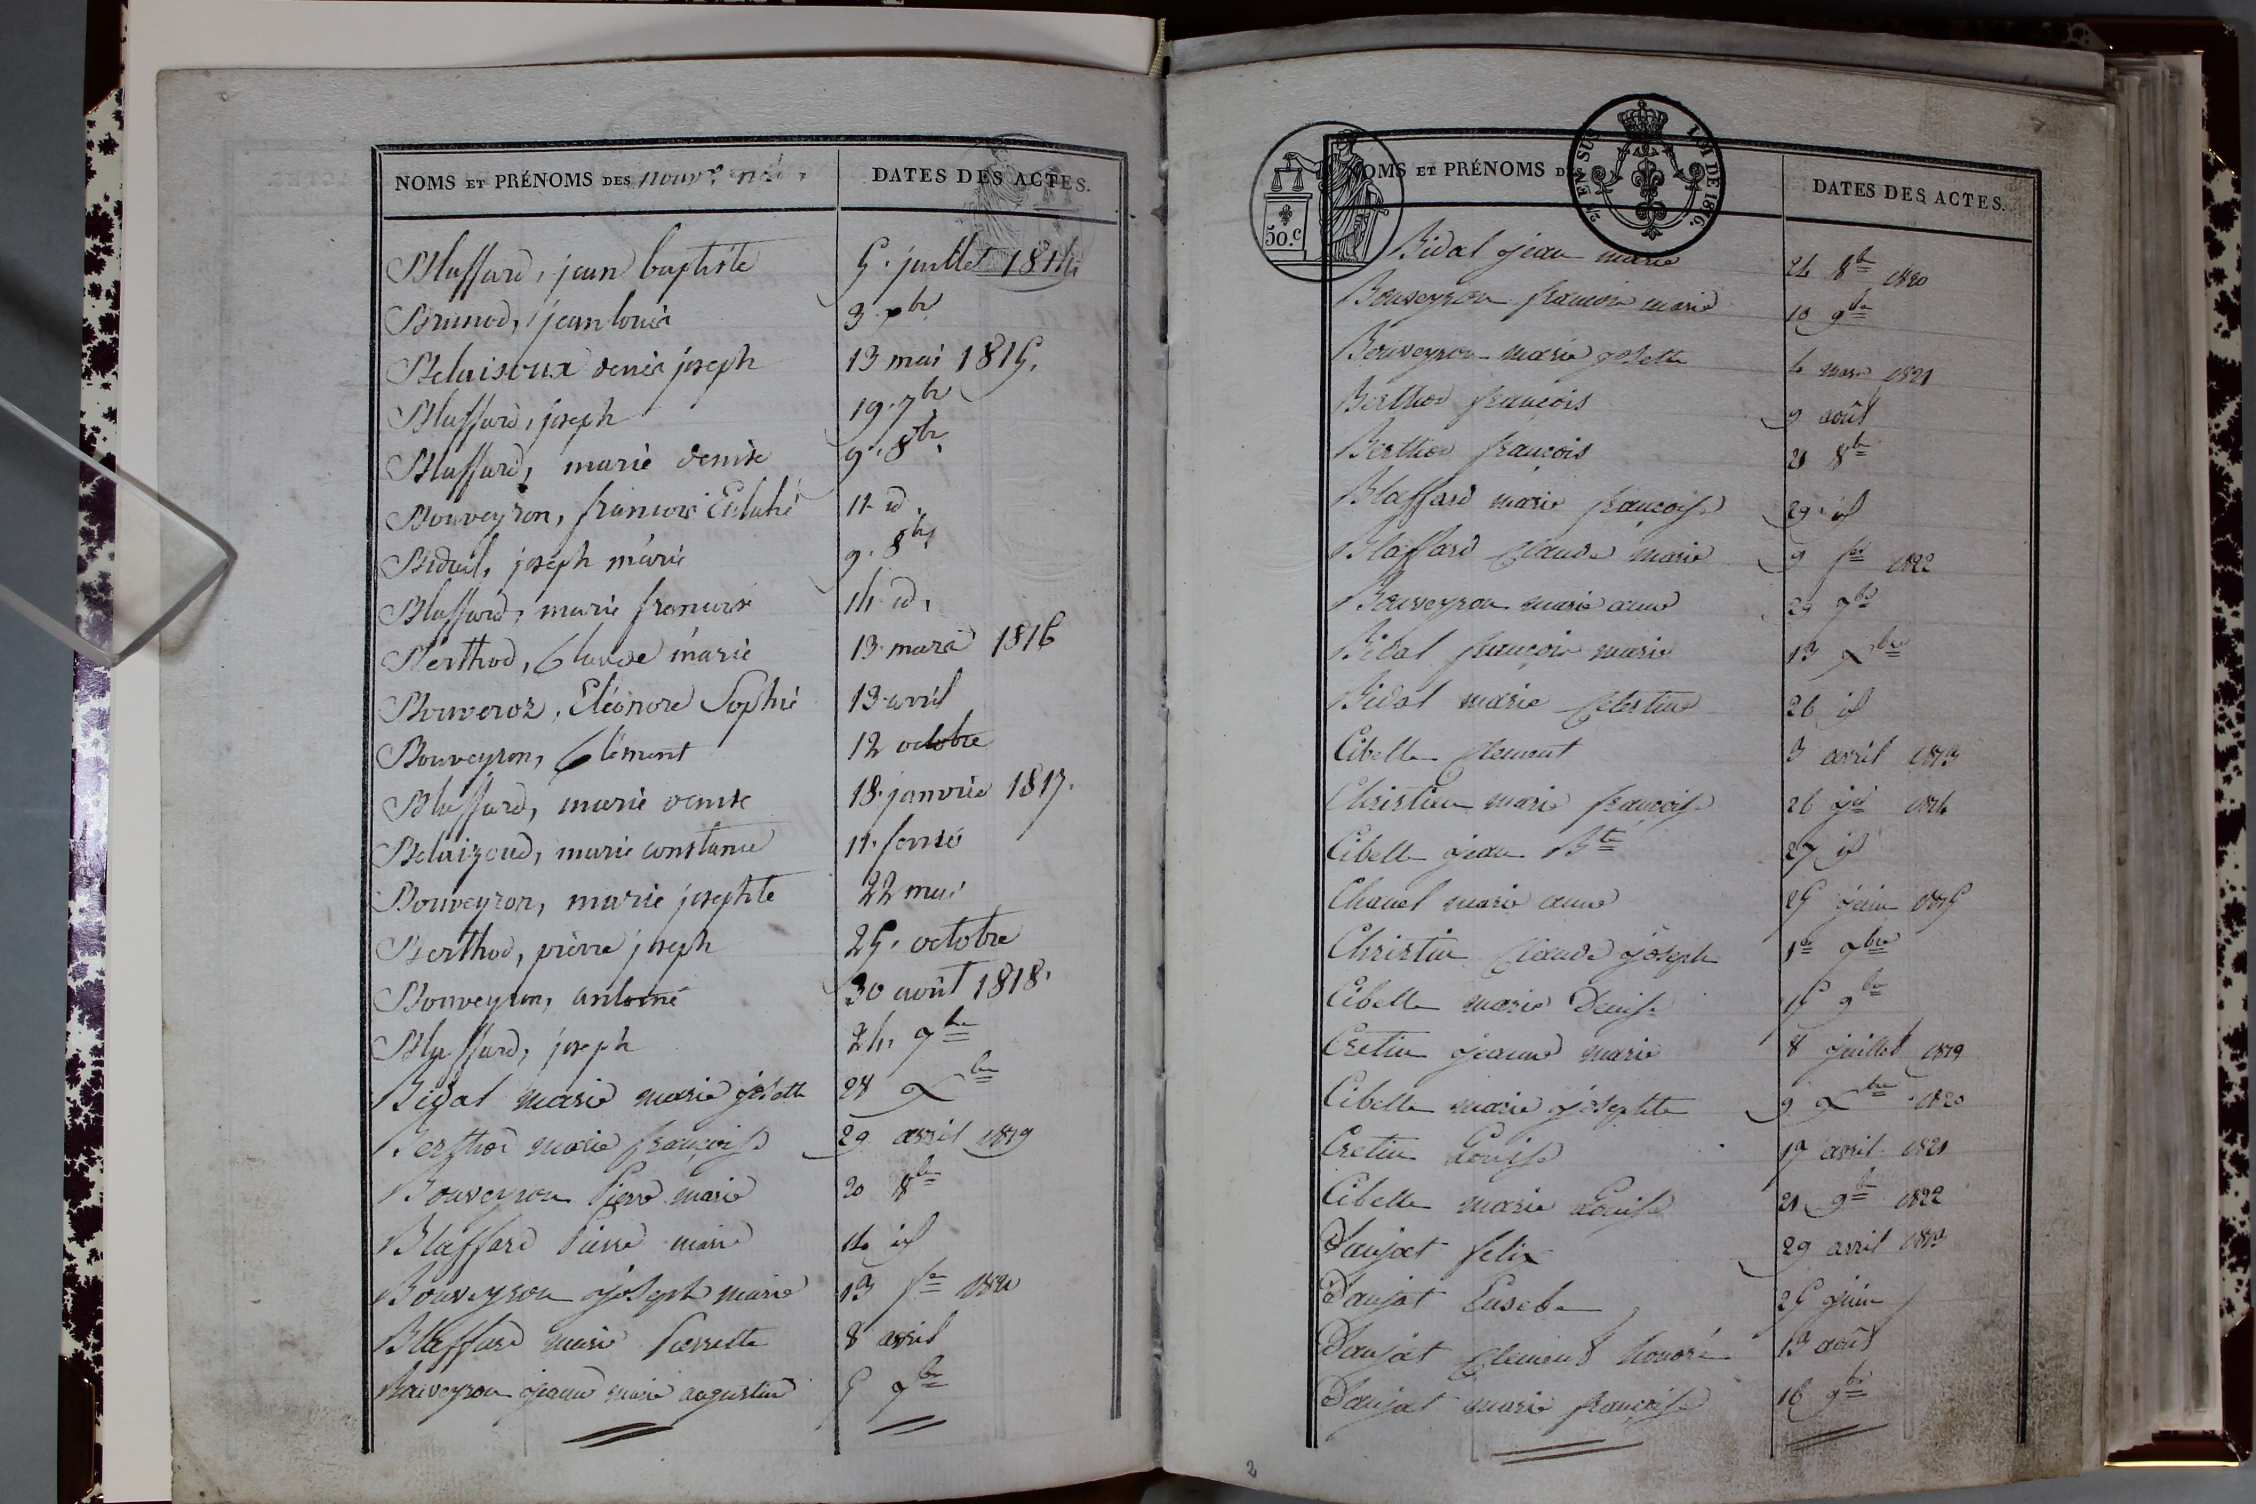 NOMS ET PRÉNOMS DES nouv.x nés,
DATES DES ACTES.
Blaffard, jean baptiste 5. juillet 1814.
Brunod, jean louis 3. xbr
Belaisoux denis joseph 13 mai 1815.
Blaffard, joseph 19. 7br
Blaffard, marie denise 9. 8br.
Bouveyron, françois 11. id.
Bidal, joseph marie 9. 8br.
Blaffard, marie françoise 14. id.
Berthod, Claude marie 13. mars 1816
Bouveroz, Eléonore Sophie 13 avril
Bouveyron, Clément 12 octobre
Blaffard, marie denise 18. janvier 1817.
Belaizoud, marie constance 11. fevrié
Bouveyron, marie josephte 22 mai
Berthod, pierre joseph 25. octobre
Bouveyron, antoine 30 août 1818.
Blaffard, joseph 24. 9bre
Bidal marie marie josette 28 Xbre
Berthod marie françoise 29 avril 1819
Bouveyron Pierre marie 20 8bre
Blaffard Pierre marie 14 id
Bouveyron joseph marie 13 fer 1820
Blaffard marie Pierrette 8 avril
Bouveyron jeanne marie augustine 5 7bre
NOMS ET PRÉNOMS DES
DATES DES ACTES.
50.C
EN SUS
LOI DE 1816.
Bidal jean marie 24 8bre 1820
Bouveyron françoise marie 10 9bre
Bouveyron marie josette 4 mars 1821
Berthod françois 9 août
Berthod françois 21 8bre
Blaffard marie françoise 29 id
Blaffard Claude marie 9 fer 1822
Bouveyron marie anne 29 7bre
Bidal françoise marie 13 Xbre
Bidal marie Celestine 26 id
Cibelle Clement 3 avril 1813
Christin marie françoise 26 jer 1814
Cibelle jean Bte 27 id
Chanel marie anne 25 juin 1815
Christin Claude joseph 1er 9bre
Cibelle marie Denise 15 9bre
Cretin jeanne marie 8 juillet 1819
Cibelle marie josephte 9 Xbre 1820
Cretin Louise 19 avril 1821
Cibelle marie Louise 21 9bre 1822
Daujat felix 29 avril 1813
Daujat Eusebe 25 juin
Daujat Clement honoré 13 août
Daujat marie françoise 16 9bre
2